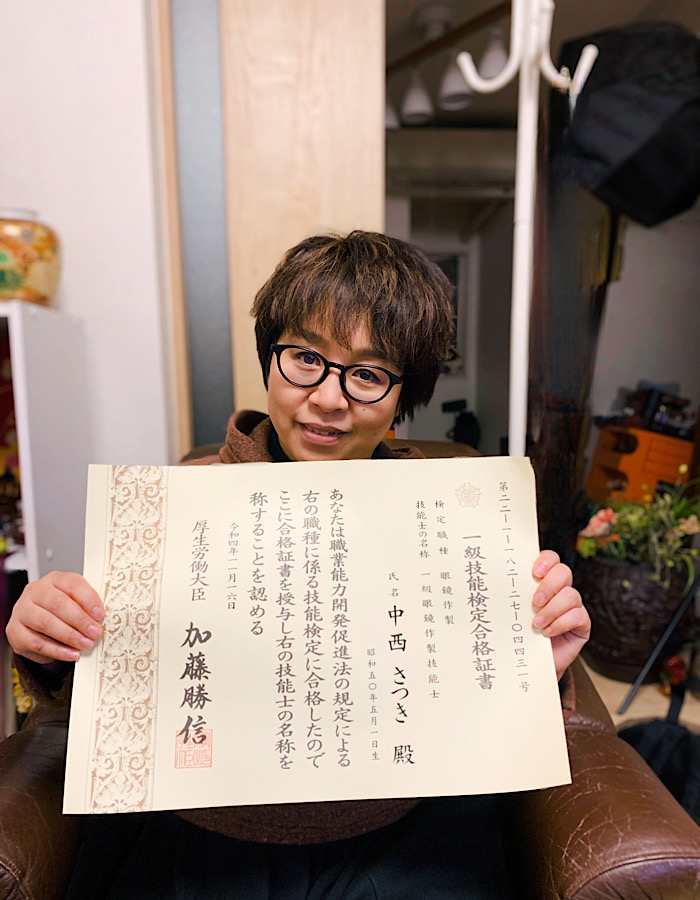 第二二-一-一八二-二七-〇四四三一号
一級技能検定合格証書
検定職種 眼鏡作製
技能士の名称 一級眼鏡作製技能士
氏名 中西 さつき 殿
昭和五〇年五月一日生
あなたは職業能力開発促進法の規定による
右の職種に係る技能検定に合格したので
ここに合格証書を授与し右の技能士の名称を
称することを認める
令和四年一一月一六日
厚生労働大臣 加藤勝信